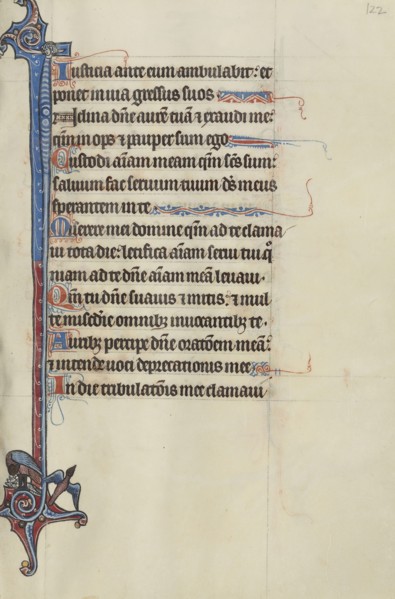 122
Iusticia ante eum ambulabit: et
ponet in uia gressus suos
Inclina dñe aurẽ tuã ⁊ exaudi me:
qm̃ inops ⁊ pauper sum ego
Custodi aĩam meam qm̃ sc̃s sum:
saluum fac seruum tuum ds̃ meus
sperantem in te
Miserere mei domine qm̃ ad te clama
ui tota die: letifica aĩam serui tui q̃
niam ad te dñe aĩam meã leuaui.
Qm̃ tu dñe suauis ⁊ mitis: ⁊ mul
te mis̃cdie omnibꝫ inuocantibꝫ te.
Auribꝫ percipe dñe orato͂em meã:
⁊ intende uoci deprecationis mee
In die tribulato͂is mee clamaui